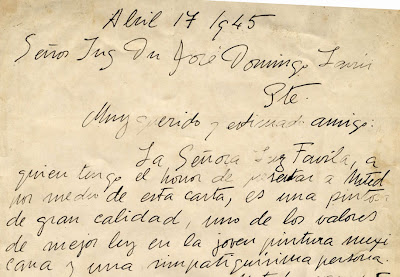 Abril 17 1945
Señor Ing Dn José Domingo Lavin
Pte.
Muy querido y estimado amigo:
La Señora Luz Favila, a
quien tengo el honor de presentar a Usted
por medio de esta carta, es una pintora
de gran calidad, uno de los valores
de mejor ley en la joven pintura mexi
cana y una simpatiquísima persona.